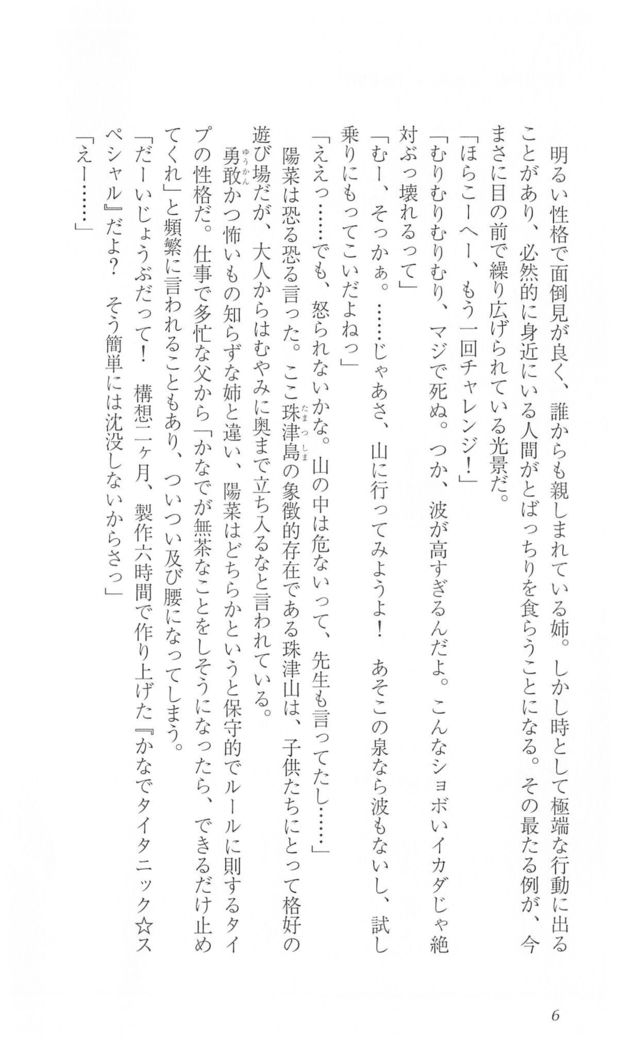 明るい性格で面倒見が良く、誰からも親しまれている姉。しかし時として極端な行動に出る
ことがあり、必然的に身近にいる人間がとばっちりを食らうことになる。その最たる例が、今
まさに目の前で繰り広げられている光景だ。
「ほらこーへー、もう一回チャレンジ！」
「むりむりむりむり、マジで死ぬ。つか、波が高すぎるんだよ。こんなショボいイカダじゃ絶
対ぶっ壊れるって」
「むー、そっかぁ。……じゃあさ、山に行ってみようよ！　あそこの泉なら波もないし、試し
乗りにもってこいだよねっ」
「ええっ……でも、怒られないかな。山の中は危ないって、先生も言ってたし……」
陽菜は恐る恐る言った。ここ珠津島の象徴的存在である珠津山は、子供たちにとって格好の
たまつしま
遊び場だが、大人からはむやみに奥まで立ち入るなと言われている。
勇敢かつ怖いもの知らずな姉と違い、陽菜はどちらかというと保守的でルールに則するタイ
ゆうかん
プの性格だ。仕事で多忙な父から「かなでが無茶なことをしそうになったら、できるだけ止め
てくれ」と頻繁に言われることもあり、ついつい及び腰になってしまう。
「だーいじょうぶだって！　構想二ヶ月、製作六時間で作り上げた『かなでタイタニック☆ス
ペシャル』だよ？　そう簡単には沈没しないからさっ」
「えー……」
6